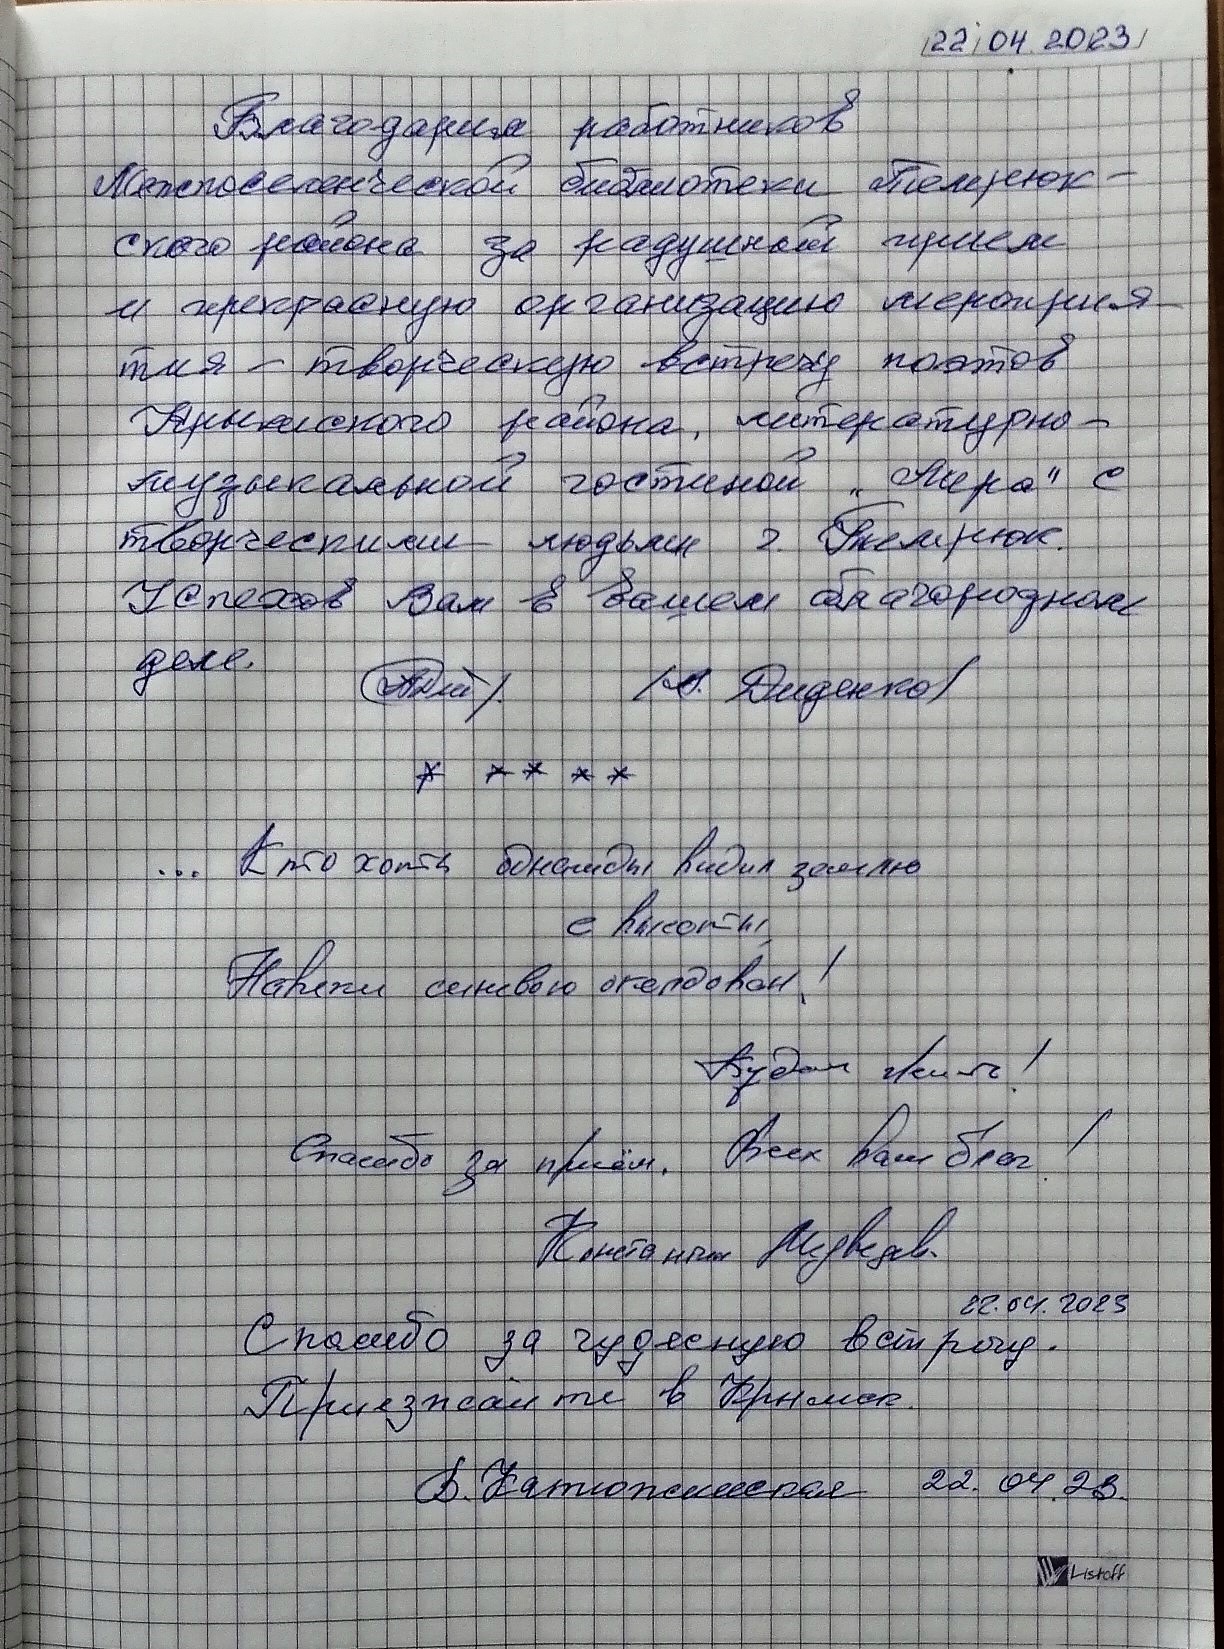 22.04.2023
Благодарим работников
Межпоселенческой библиотеки Темрюк-
ского района за радушный прием
и прекрасную организацию мероприя-
тия - творческую встречу поэтов
Крымского района, литературно-
музыкальной гостиной „Лира" с
творческими людьми г. Темрюк.
Успехов Вам в вашем благородном
деле.
Диденко/
* ** **
... Кто хоть однажды видел землю
с высоты,
Навеки синевою околдован!
Будем жить!
Спасибо за приём. Всех вам благ!
Константин Медведев.
22.04.2023
Спасибо за чудесную встречу.
Приезжайте в Крымск.
22.04.23.
Listoff